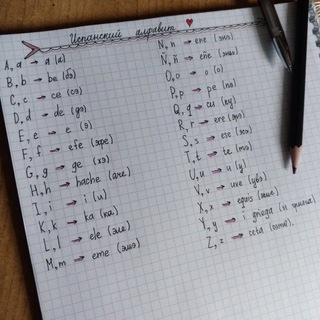 Испанский алфавит
A, a → a (а)
B, b → be (бэ)
C, c → ce (сэ)
D, d → de (дэ)
E, e → e (э)
F, f → efe (эфе)
G, g → ge (хэ)
H, h → hache (аче)
I, i → i (и)
K, k → ka (ка)
L, l → ele (эле)
M, m → eme (эмэ)
N, n → ene (энэ)
Ñ, ñ → eñe (энье)
O, o → o (о)
P, p → pe (пэ)
Q, q → cu (ку)
R, r → ere (эрэ)
S, s → ese (эсэ)
T, t → te (тэ)
U, u → u (у)
V, v → uve (увэ)
X, x → equis (экис)
Y, y → i griega (и griega)
Z, z → ceta (сэта)